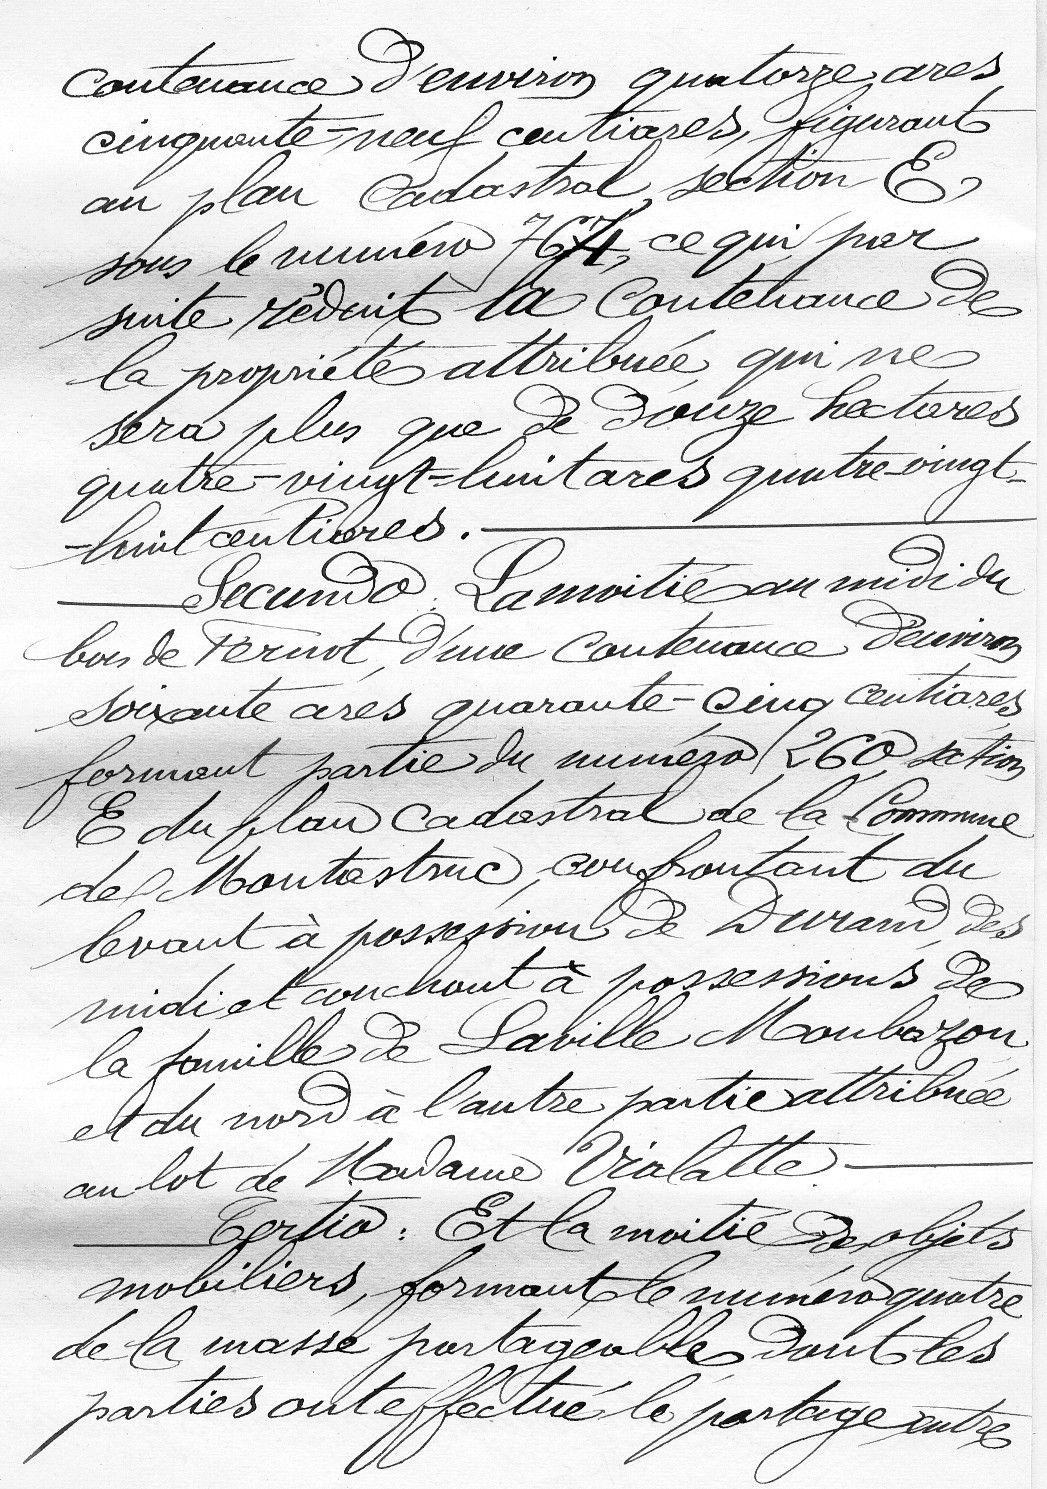 contenance d'environ quatorze ares
cinquante-neuf centiares, figurant
au plan cadastral, section E,
sous le numéro 764, ce qui par
suite réduit la contenance de
la propriété attribuée, qui ne
sera plus que de douze hectares
quatre-vingt-huit ares quatre-vingt-
-huit centiares.
Secundo : La moitié au midi du
bois de Fernot, d'une contenance d'environ
soixante ares quarante-cinq centiares,
formant partie du numéro 260, section
E du plan cadastral de la Commune
de Montastruc, confrontant du
levant à possession de Durand, des
midi et couchant à possessions de
la famille de Laville Monbazon
et du nord à l'autre partie attribuée
au lot de Madame Vialatte.
Tertio : Et la moitié de objets
mobiliers, formant le numéro quatre
de la masse partageable, dont les
parties ont effectué le partage entre